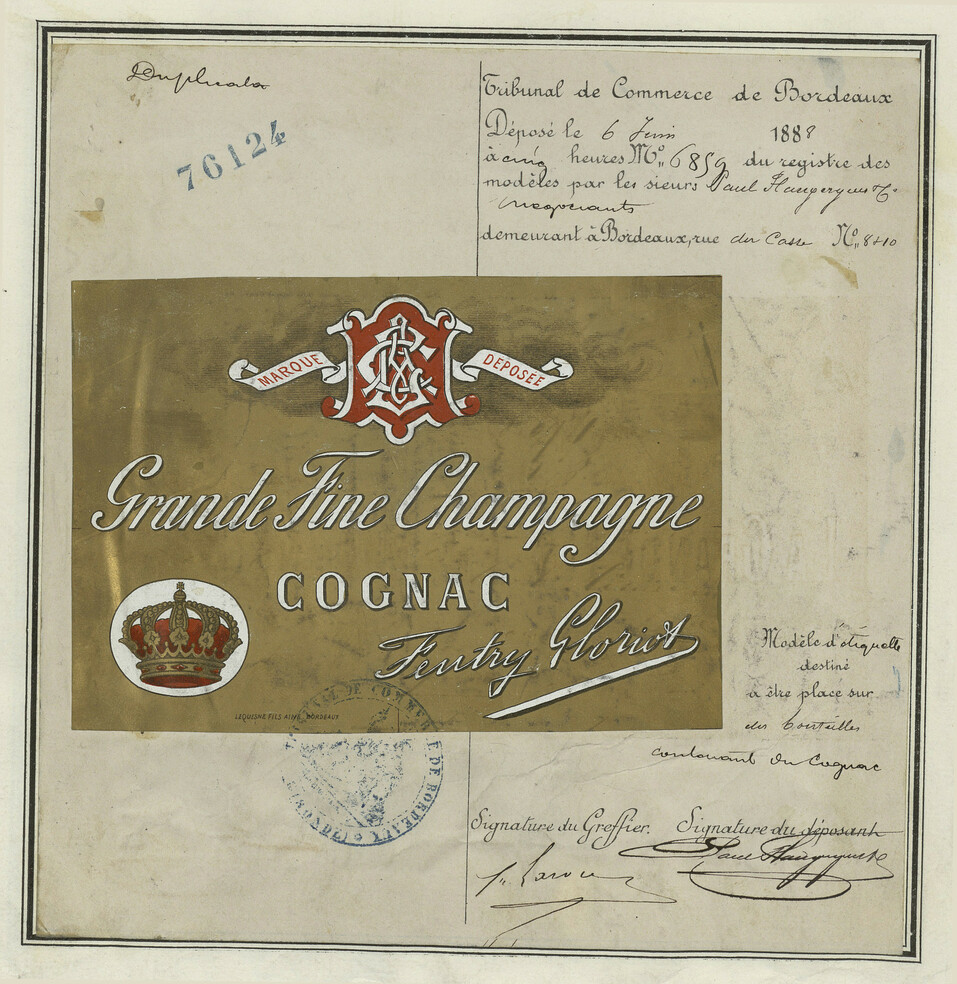 Duplicata
76124
Tribunal de Commerce de Bordeaux
Déposé le 6 Juin 1888
à cinq heures No. 6859 du registre des
modèles par les sieurs Paul Flaugergues & Cie
négociants
demeurant à Bordeaux, rue du Casse No. 8&10
MARQUE DEPOSÉE
Grande Fine Champagne
COGNAC
Fentry Gloriot
LEQUESNE FILS AINÉ. BORDEAUX
TRIBUNAL DE COMMERCE DE BORDEAUX
Modèle d'étiquette
destiné
à être placé sur
des bouteilles
contenant du Cognac
Signature du Greffier. Signature du déposant
Paul Flaugergues & Cie